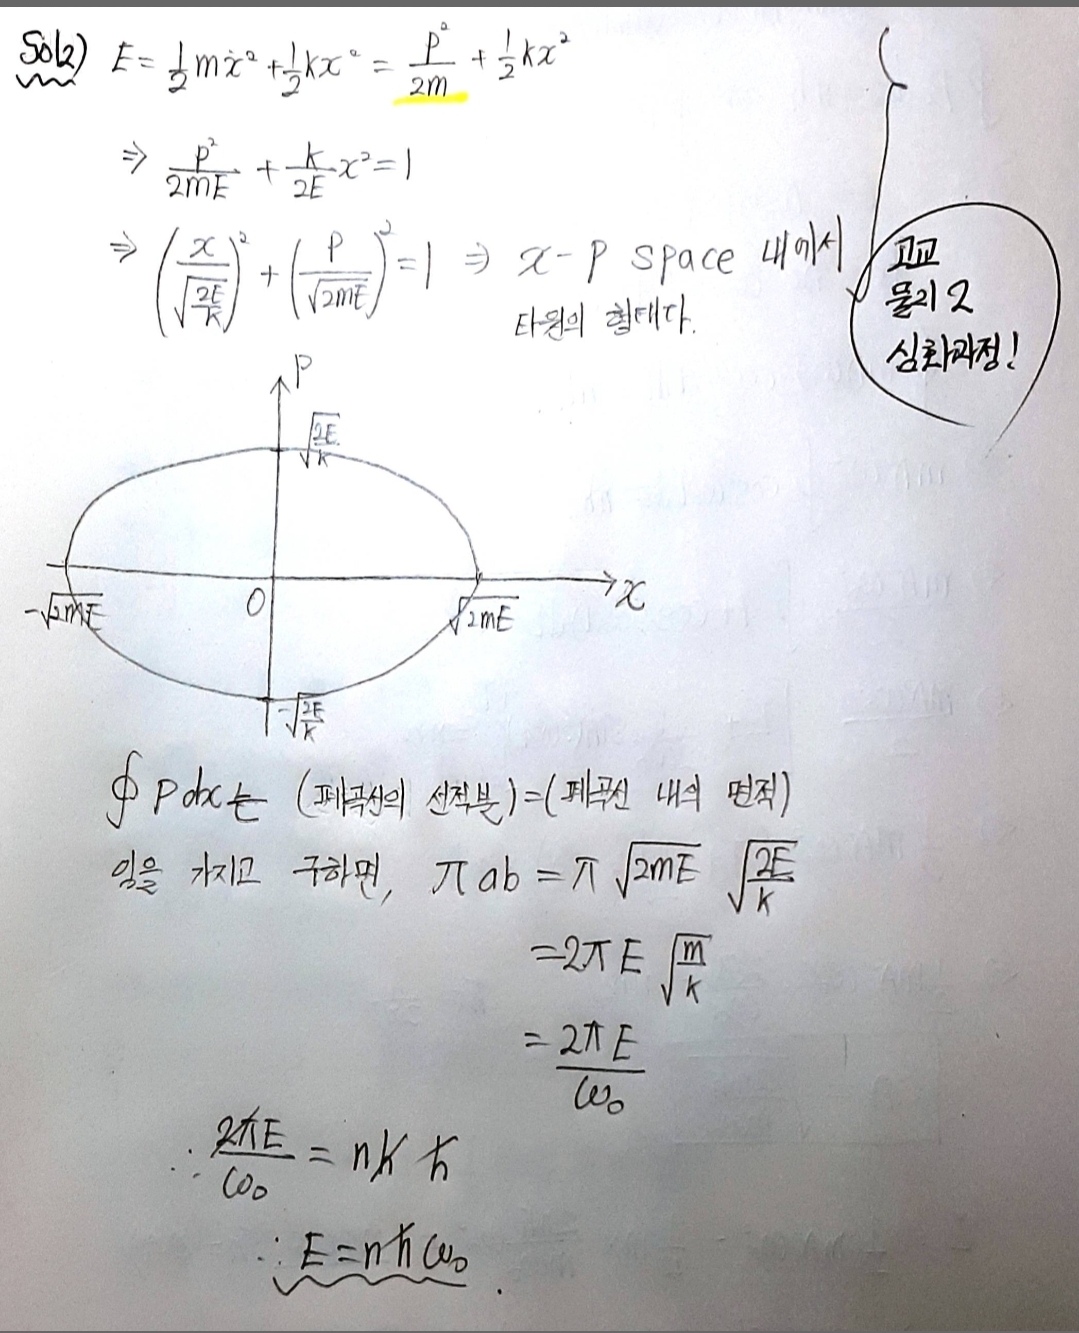 Sol2) E = 1/2 mẋ² + 1/2 kx² = p²/2m + 1/2 kx²
⇒ p²/2mE + k/2E x² = 1
⇒ (x/√(2E/k))² + (p/√(2mE))² = 1 ⇒ x-p space 내에서
타원의 형태다.
고교
물리2
심화과정!
P
√(2E/k)
-√(2mE)
O
√(2mE)
x
-√(2E/k)
∮ p dx는 (폐곡선의 선적분) = (폐곡선 내의 면적)
임을 가지고 구하면, πab = π √(2mE) √(2E/k)
= 2πE √(m/k)
= 2πE/ω₀
∴ 2πE/ω₀ = nh ℏ
∴ E = nℏω₀.